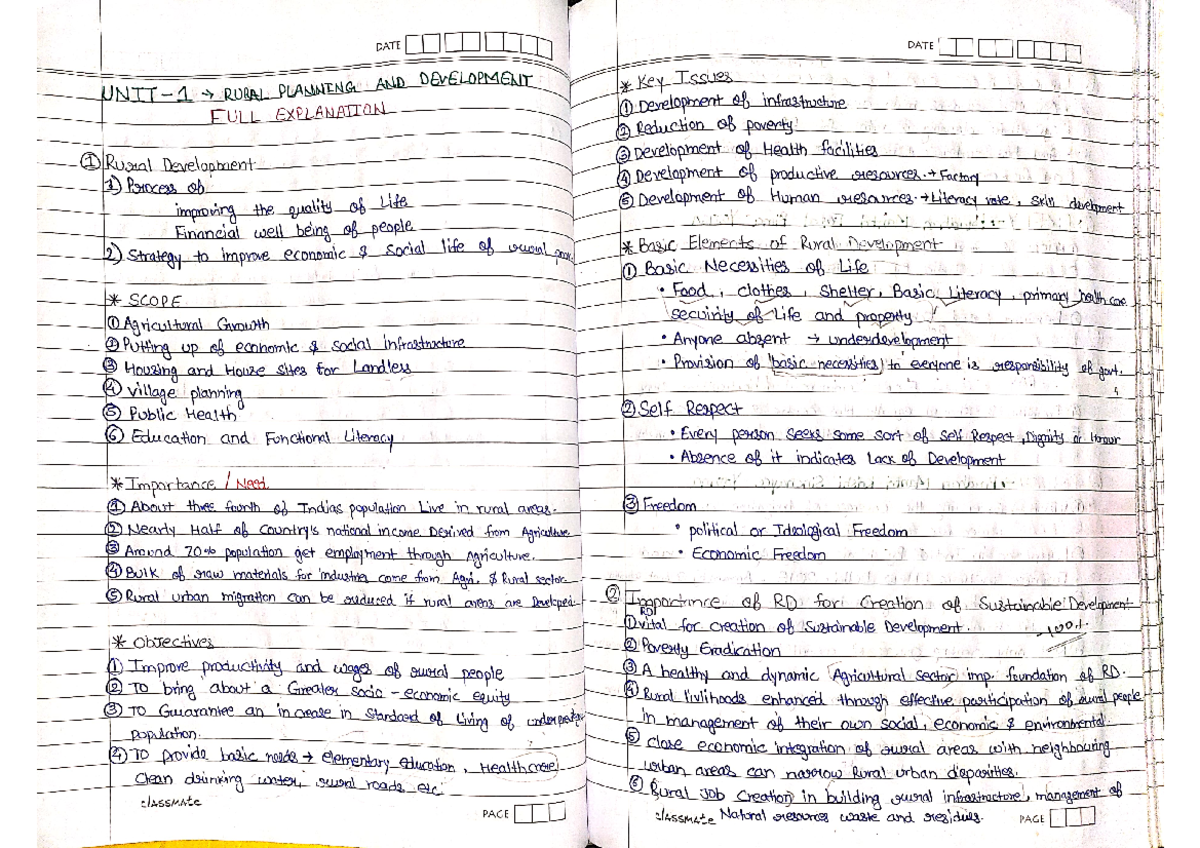 DATE
UNIT-1 → RURAL PLANNING AND DEVELOPMENT
FULL EXPLANATION
① Rural Development
1) Process of
improving the quality of Life
Financial well being of people
2) Strategy to improve economic & social life of rural
* SCOPE
① Agricultural Growth
② Putting up of economic & social infrastructure
③ Housing and House sites for Landless
④ village planning
⑤ Public Health
⑥ Education and Functional Literacy
* Importance / Need
① About three fourth of Indias population Live in rural areas.
② Nearly Half of Country's national income Derived from Agriculture
③ Around 70% population get employment through Agriculture.
④ Bulk of raw materials for industries come from Agri. & Rural sector
⑤ Rural urban migration can be reduced if rural areas are Developed
* Objectives
① Improve productivity and wages of rural people
② TO bring about a Greater socio-economic equity
③ TO Guarantee an increase in standard of Living of
population.
④ TO provide basic needs → elementary education, Healthcare
Clean drinking water, rural roads etc
classmate
PAGE
DATE
* Key Issues
① Development of infrastructure
② Reduction of poverty
③ Development of Health facilities
④ Development of productive resources. → Factory
⑤ Development of Human resources → Literacy rate, Skill development
* Basic Elements of Rural Development
① Basic Necessities of Life
• Food, clothes, Shelter, Basic Literacy, primary health care
security of Life and property
• Anyone absent → underdevelopment
• Provision of (basic necessities) to everyone is responsibility of govt.
② Self Respect
• Every person seeks some sort of Self Respect, Dignity or Honour
• Absence of it indicates Lack of Development
③ Freedom
• political or Ideological Freedom
• Economic Freedom
② Importance of RD for Creation of Sustainable Development
RD
① vital for creation of Sustainable Development.
② Poverty Eradication
③ A healthy and dynamic (Agricultural sector) imp. foundation of RD.
④ Rural livlihoods enhanced through effective participation of rural people
in management of their own social, economic & environmental
⑤ close economic integration of rural areas with neighbouring
urban areas can narrow Rural urban disparities.
⑥ (Rural Job Creation) in building rural infrastructure, management of
classmate Natural resources waste and residues.
PAGE